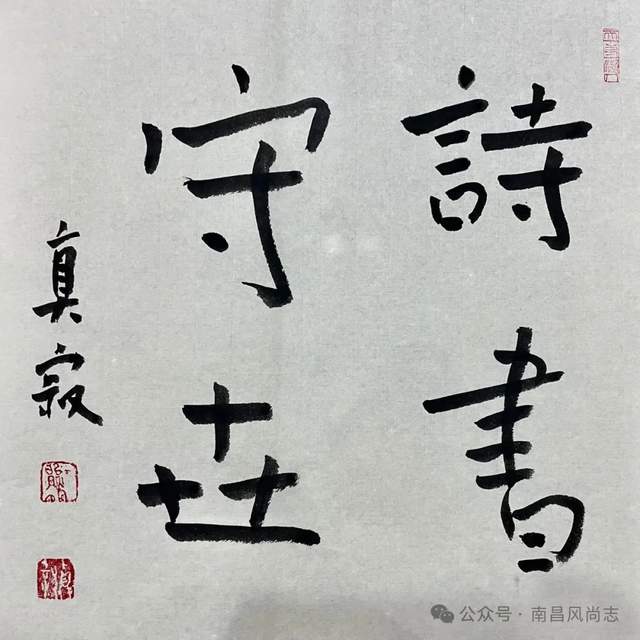 詩書
守卋
真寂
公众号 · 南昌风尚志